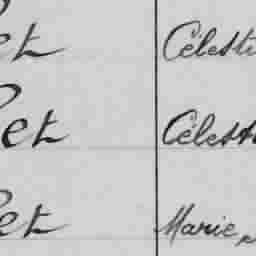 et Célesti
et Célest
et Marie